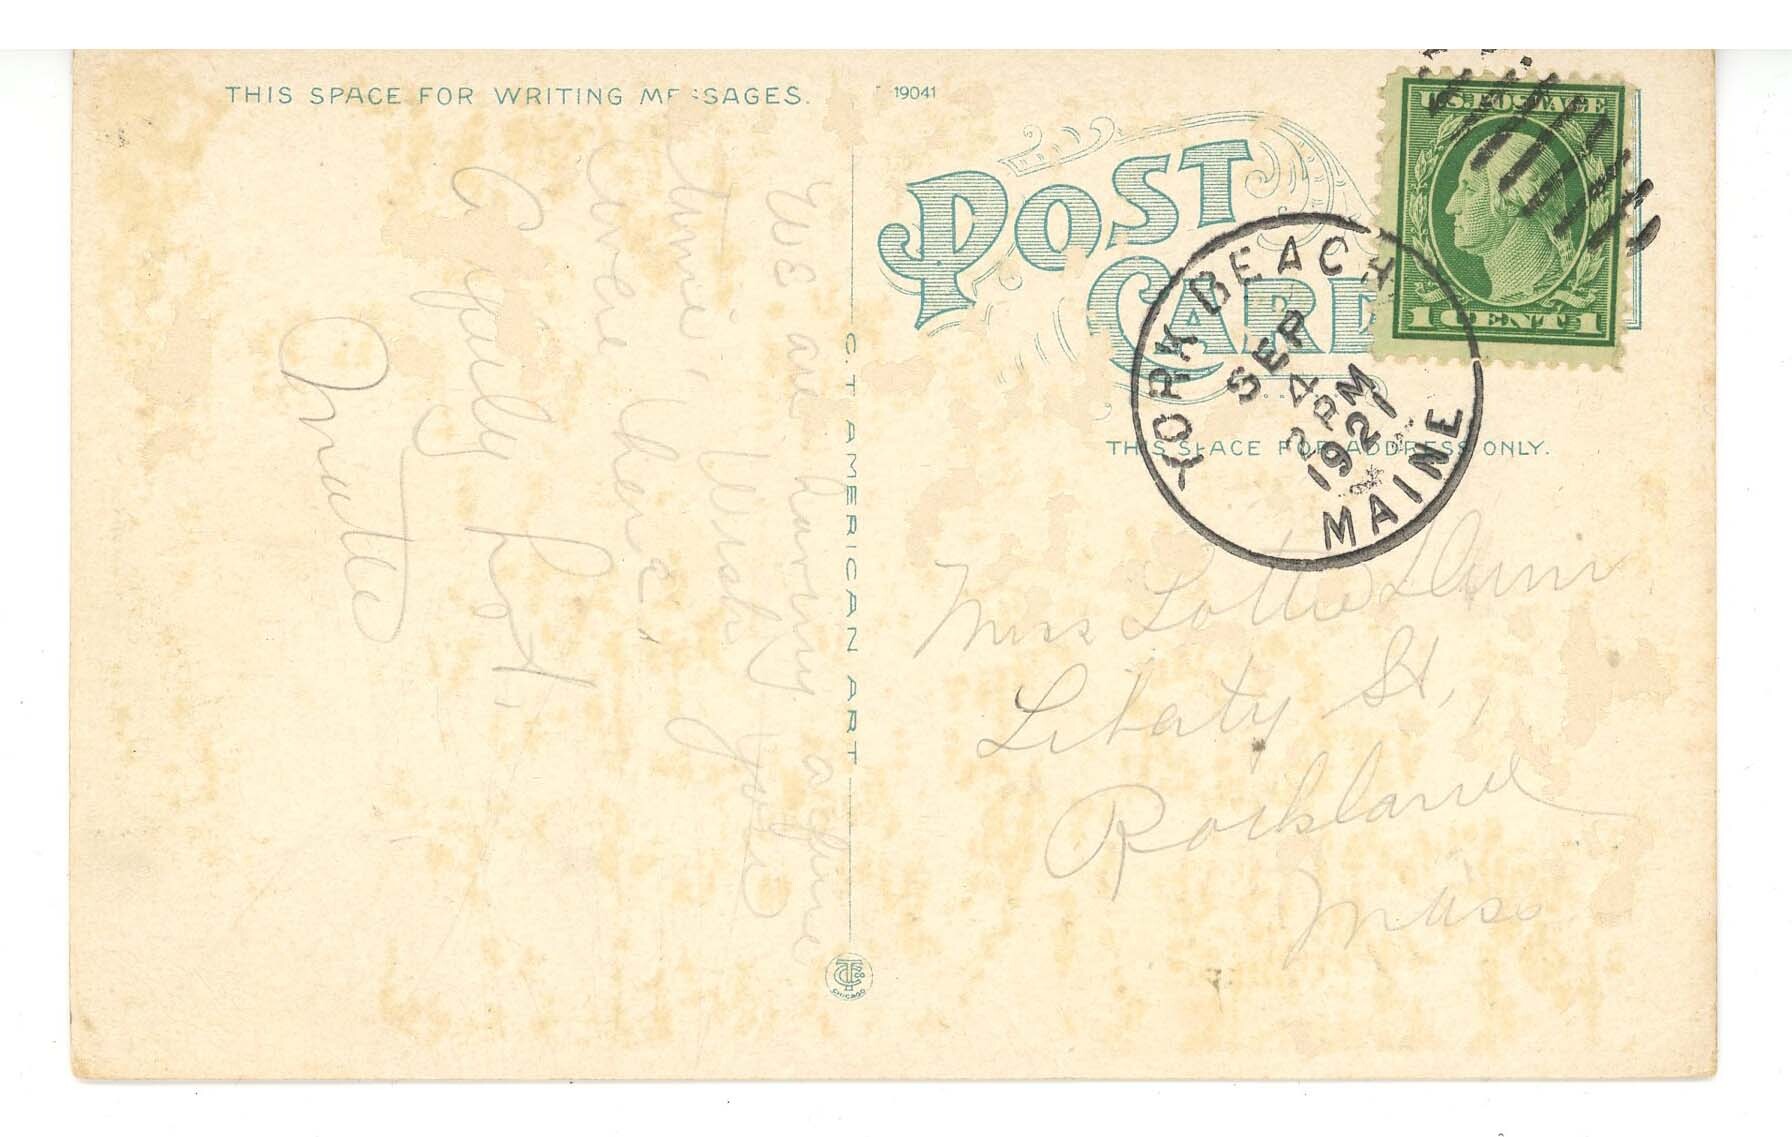 THIS SPACE FOR WRITING MESSAGES.
19041
POST
CARD
U.S. POSTAGE
1 CENT 1
YORK BEACH
SEP
4
2 PM
1921
MAINE
THIS SPACE FOR ADDRESS ONLY.
Miss Lottie
Liberty St,
Rockland
Mass
C. T. AMERICAN ART
CHICAGO
We are having a fine
time, Wish you
were here.